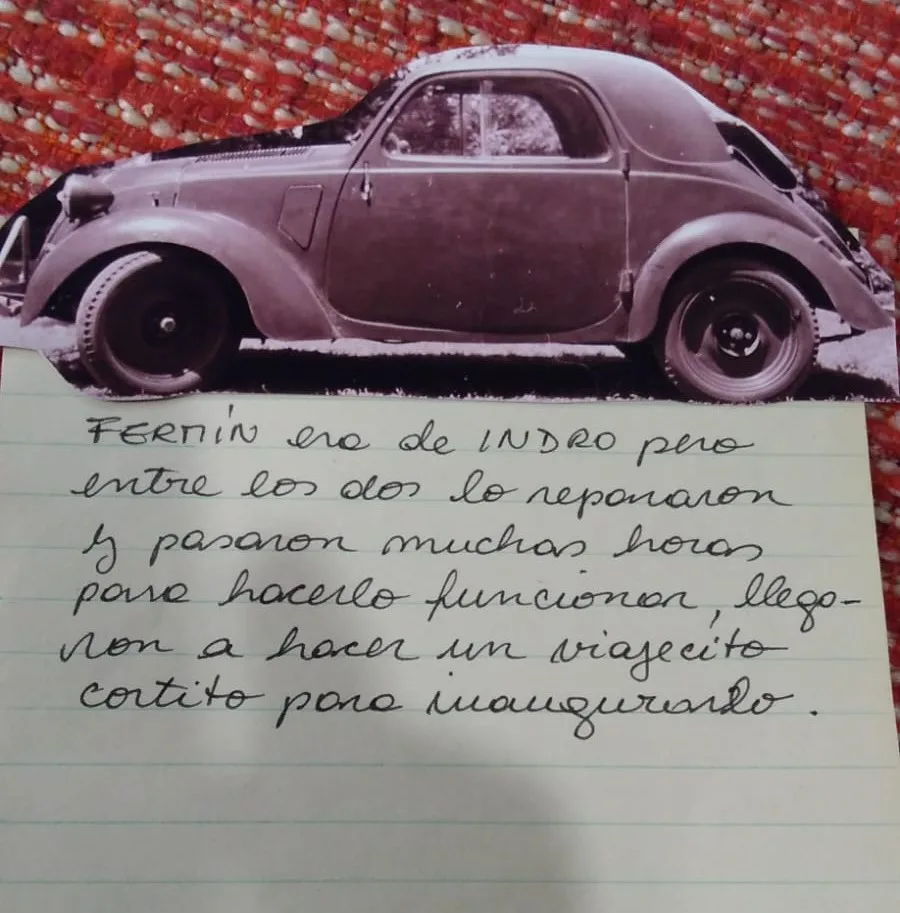 FERMÍN era de INDRO pero
entre los dos lo repararon
y pasaron muchas horas
para hacerlo funcionar, llega-
ron a hacer un viajecito
cortito para inaugurarlo.